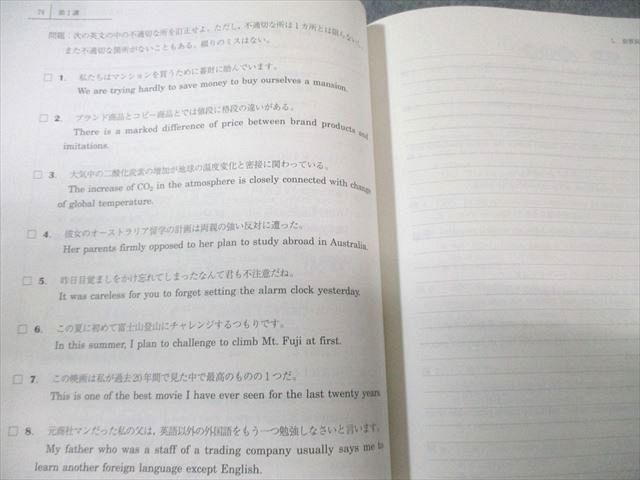 74 第1講
問題:次の英文の中の不適切な所を訂正せよ。ただし,不適切な所は1カ所とは限らないし,
また不適切な箇所がないこともある。綴りのミスはない。
□ 1. 私たちはマンションを買うために蓄財に励んでいます。
We are trying hardly to save money to buy ourselves a mansion.
□ 2. ブランド商品とコピー商品とでは値段に格段の違いがある。
There is a marked difference of price between brand products and
imitations.
□ 3. 大気中の二酸化炭素の増加が地球の温度変化と密接に関わっている。
The increase of CO₂ in the atmosphere is closely connected with change
of global temperature.
□ 4. 彼女のオーストラリア留学の計画は両親の強い反対に遭った。
Her parents firmly opposed to her plan to study abroad in Australia.
□ 5. 昨日目覚ましをかけ忘れてしまったなんて君も不注意だね。
It was careless for you to forget setting the alarm clock yesterday.
□ 6. この夏に初めて富士山登山にチャレンジするつもりです。
In this summer, I plan to challenge to climb Mt. Fuji at first.
□ 7. この映画は私が過去20年間で見た中で最高のものの1つだ。
This is one of the best movie I have ever seen for the last twenty years
□ 8. 元商社マンだった私の父は,英語以外の外国語をもう一つ勉強しなさいと言います。
My father who was a staff of a trading company usually says me to
learn another foreign language except English.